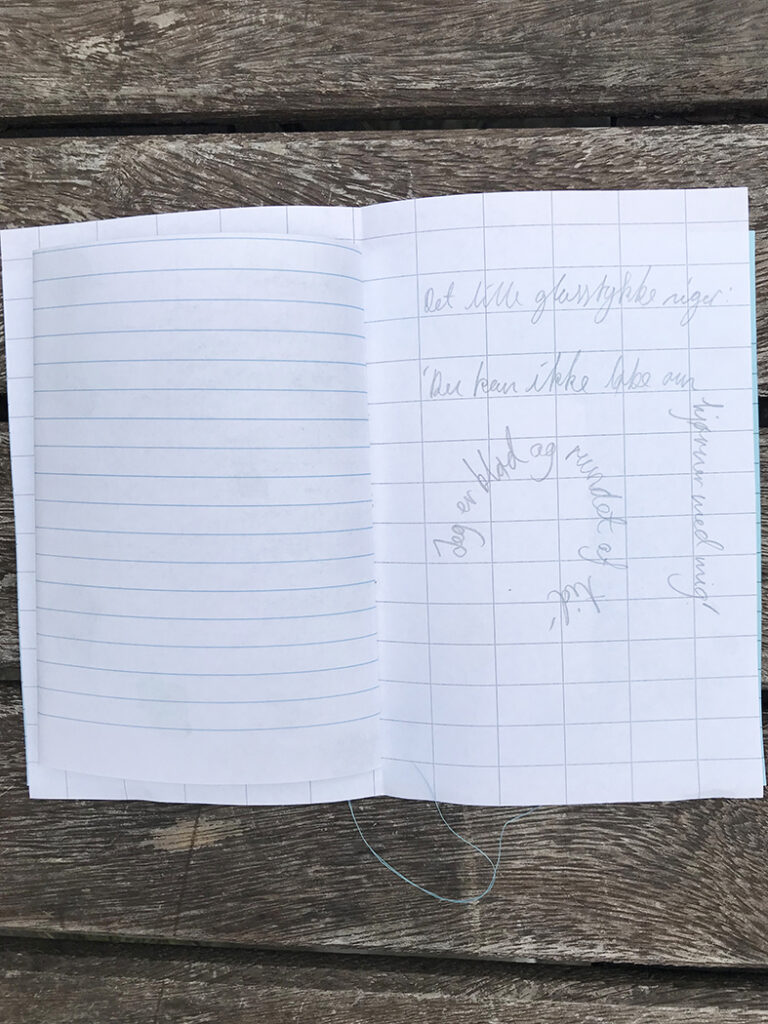 Det lille glasstykke siger:
'Du kan ikke løbe om
hjørner med mig!
Jeg er blød og rundet af tid'